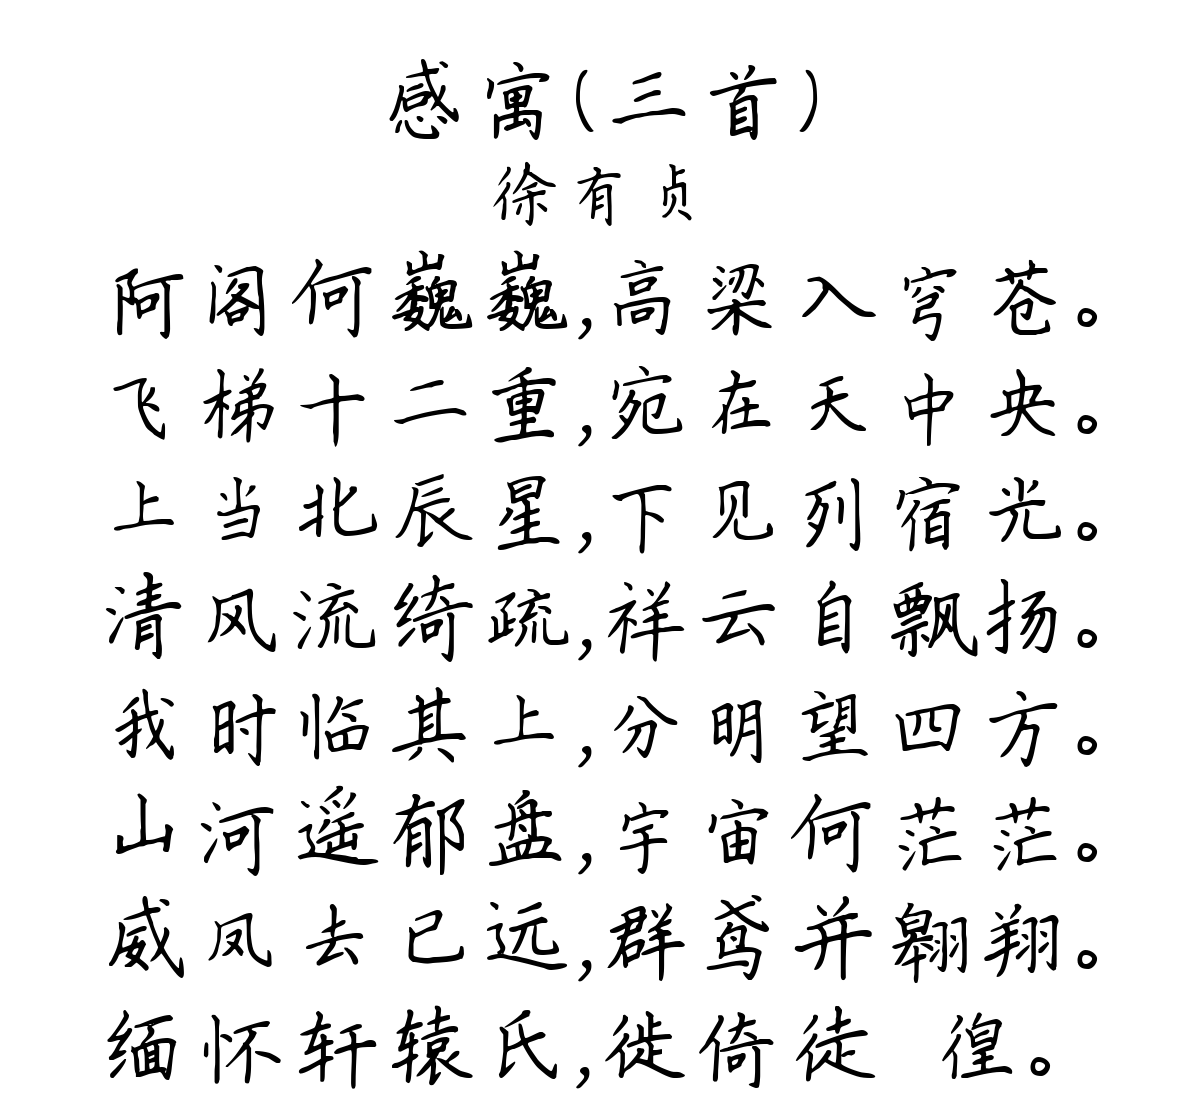 感寓(三首)
徐有贞
阿阁何巍巍,高梁入穹苍。
飞梯十二重,宛在天中央。
上当北辰星,下见列宿光。
清风流绮疏,祥云自飘扬。
我时临其上,分明望四方。
山河遥郁盘,宇宙何茫茫。
威凤去已远,群鸢并翱翔。
缅怀轩辕氏,徙倚徒 徨。